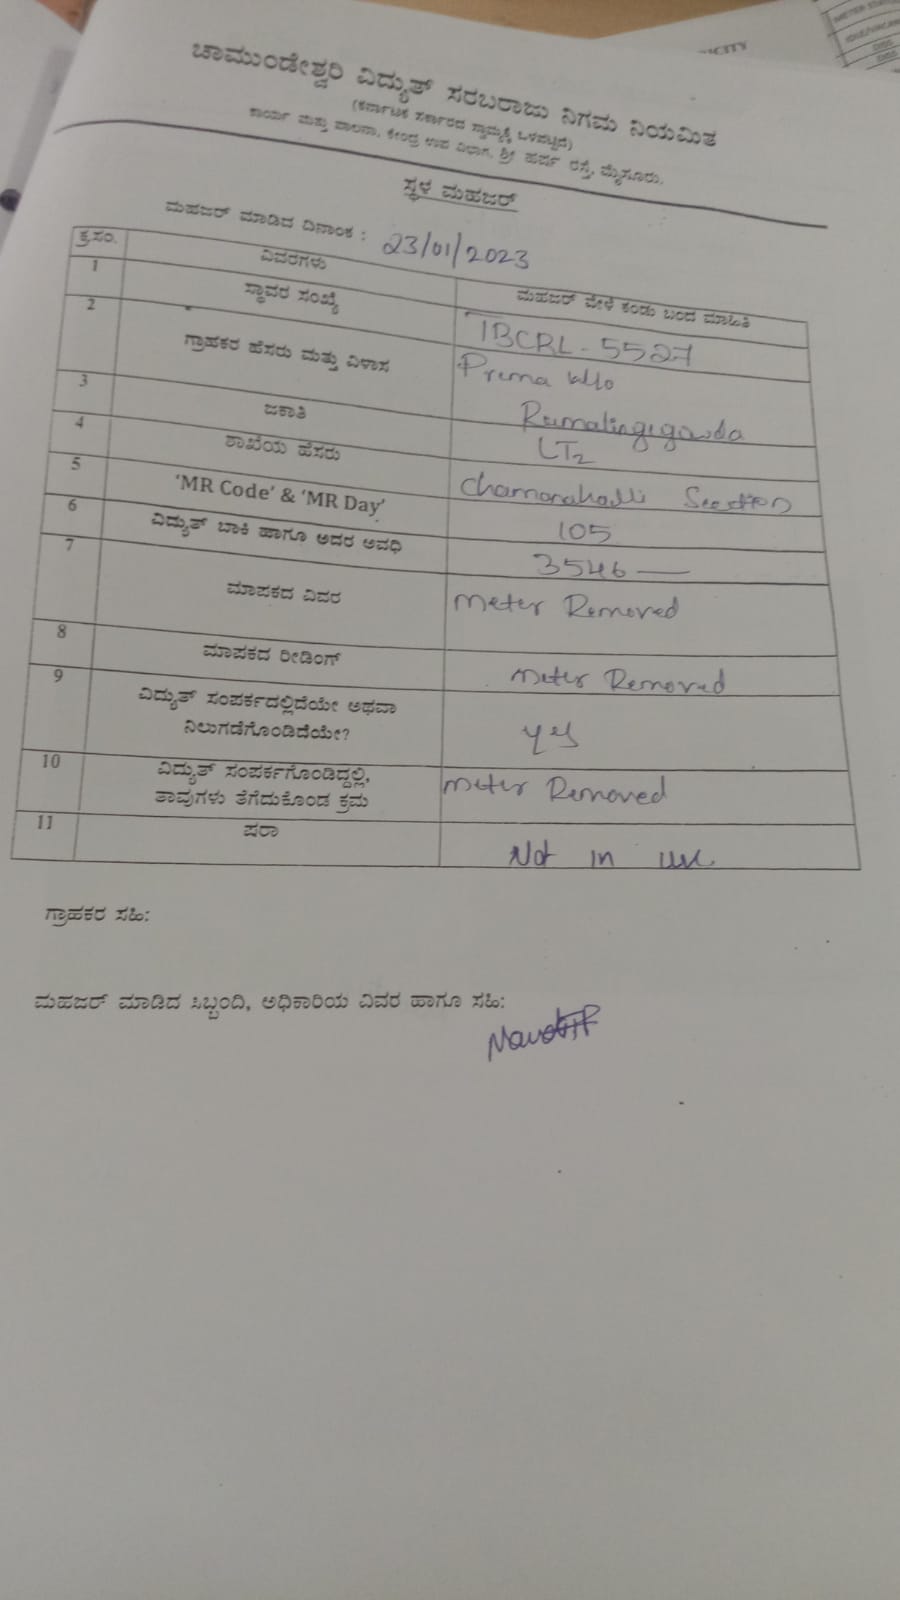 ಚಾಮುಂಡೇಶ್ವರಿ ವಿದ್ಯುತ್ ಸರಬರಾಜು ನಿಗಮ ನಿಯಮಿತ
(ಕರ್ನಾಟಕ ಸರ್ಕಾರದ ಸ್ವಾಮ್ಯಕ್ಕೆ ಒಳಪಟ್ಟಿದೆ)
ಕಾರ್ಯ ಮತ್ತು ಪಾಲನಾ, ಕೇಂದ್ರ ಉಪ ವಿಭಾಗ, ಶ್ರೀ ಹರ್ಷ ರಸ್ತೆ, ಮೈಸೂರು.
ಸ್ಥಳ ಮಹಜರ್
ಮಹಜರ್ ಮಾಡಿದ ದಿನಾಂಕ : 23/01/2023
ಕ್ರ.ಸಂ. ವಿವರಗಳು ಮಹಜರ್ ವೇಳೆ ಕಂಡು ಬಂದ ಮಾಹಿತಿ
1 ಸ್ಥಾವರ ಸಂಖ್ಯೆ TBCRL-5527
2 ಗ್ರಾಹಕರ ಹೆಸರು ಮತ್ತು ವಿಳಾಸ Prema W/o
Ramalingegowda
3 ಜಕಾತಿ LT2
4 ಶಾಖೆಯ ಹೆಸರು Chamanahalli Section
5 'MR Code' & 'MR Day' 105
6 ವಿದ್ಯುತ್ ಬಾಕಿ ಹಾಗೂ ಅದರ ಅವಧಿ 3546 —
7 ಮಾಪಕದ ವಿವರ Meter Removed
8 ಮಾಪಕದ ರೀಡಿಂಗ್ Meter Removed
9 ವಿದ್ಯುತ್ ಸಂಪರ್ಕದಲ್ಲಿದೆಯೇ ಅಥವಾ
ನಿಲುಗಡೆಗೊಂಡಿದೆಯೇ? yes
10 ವಿದ್ಯುತ್ ಸಂಪರ್ಕಗೊಂಡಿದ್ದಲ್ಲಿ,
ತಾವುಗಳು ತೆಗೆದುಕೊಂಡ ಕ್ರಮ Meter Removed
11 ಷರಾ Not in use
ಗ್ರಾಹಕರ ಸಹಿ:
ಮಹಜರ್ ಮಾಡಿದ ಸಿಬ್ಬಂದಿ, ಅಧಿಕಾರಿಯ ವಿವರ ಹಾಗೂ ಸಹಿ: